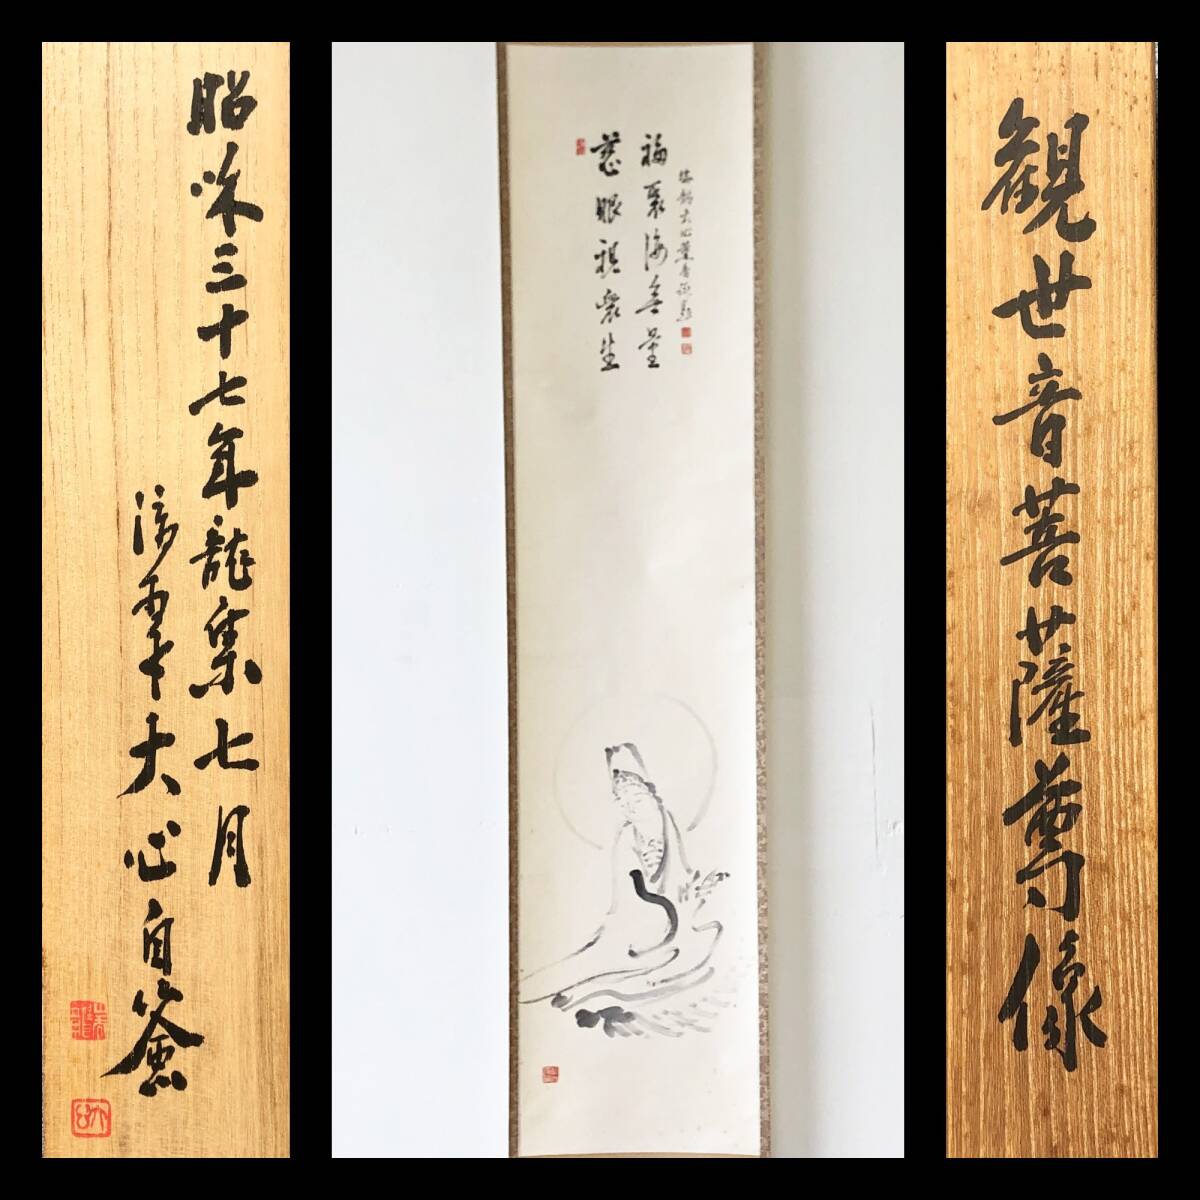 観世音菩薩尊像
慈眼視衆生
福聚海無量
大心
昭和三十七年龍集七月
大心自簽